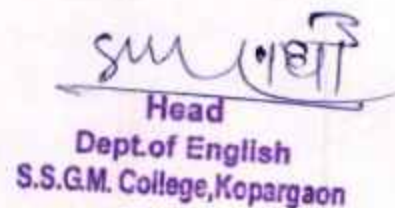 Head
Dept.of English
S.S.G.M. College,Kopargaon